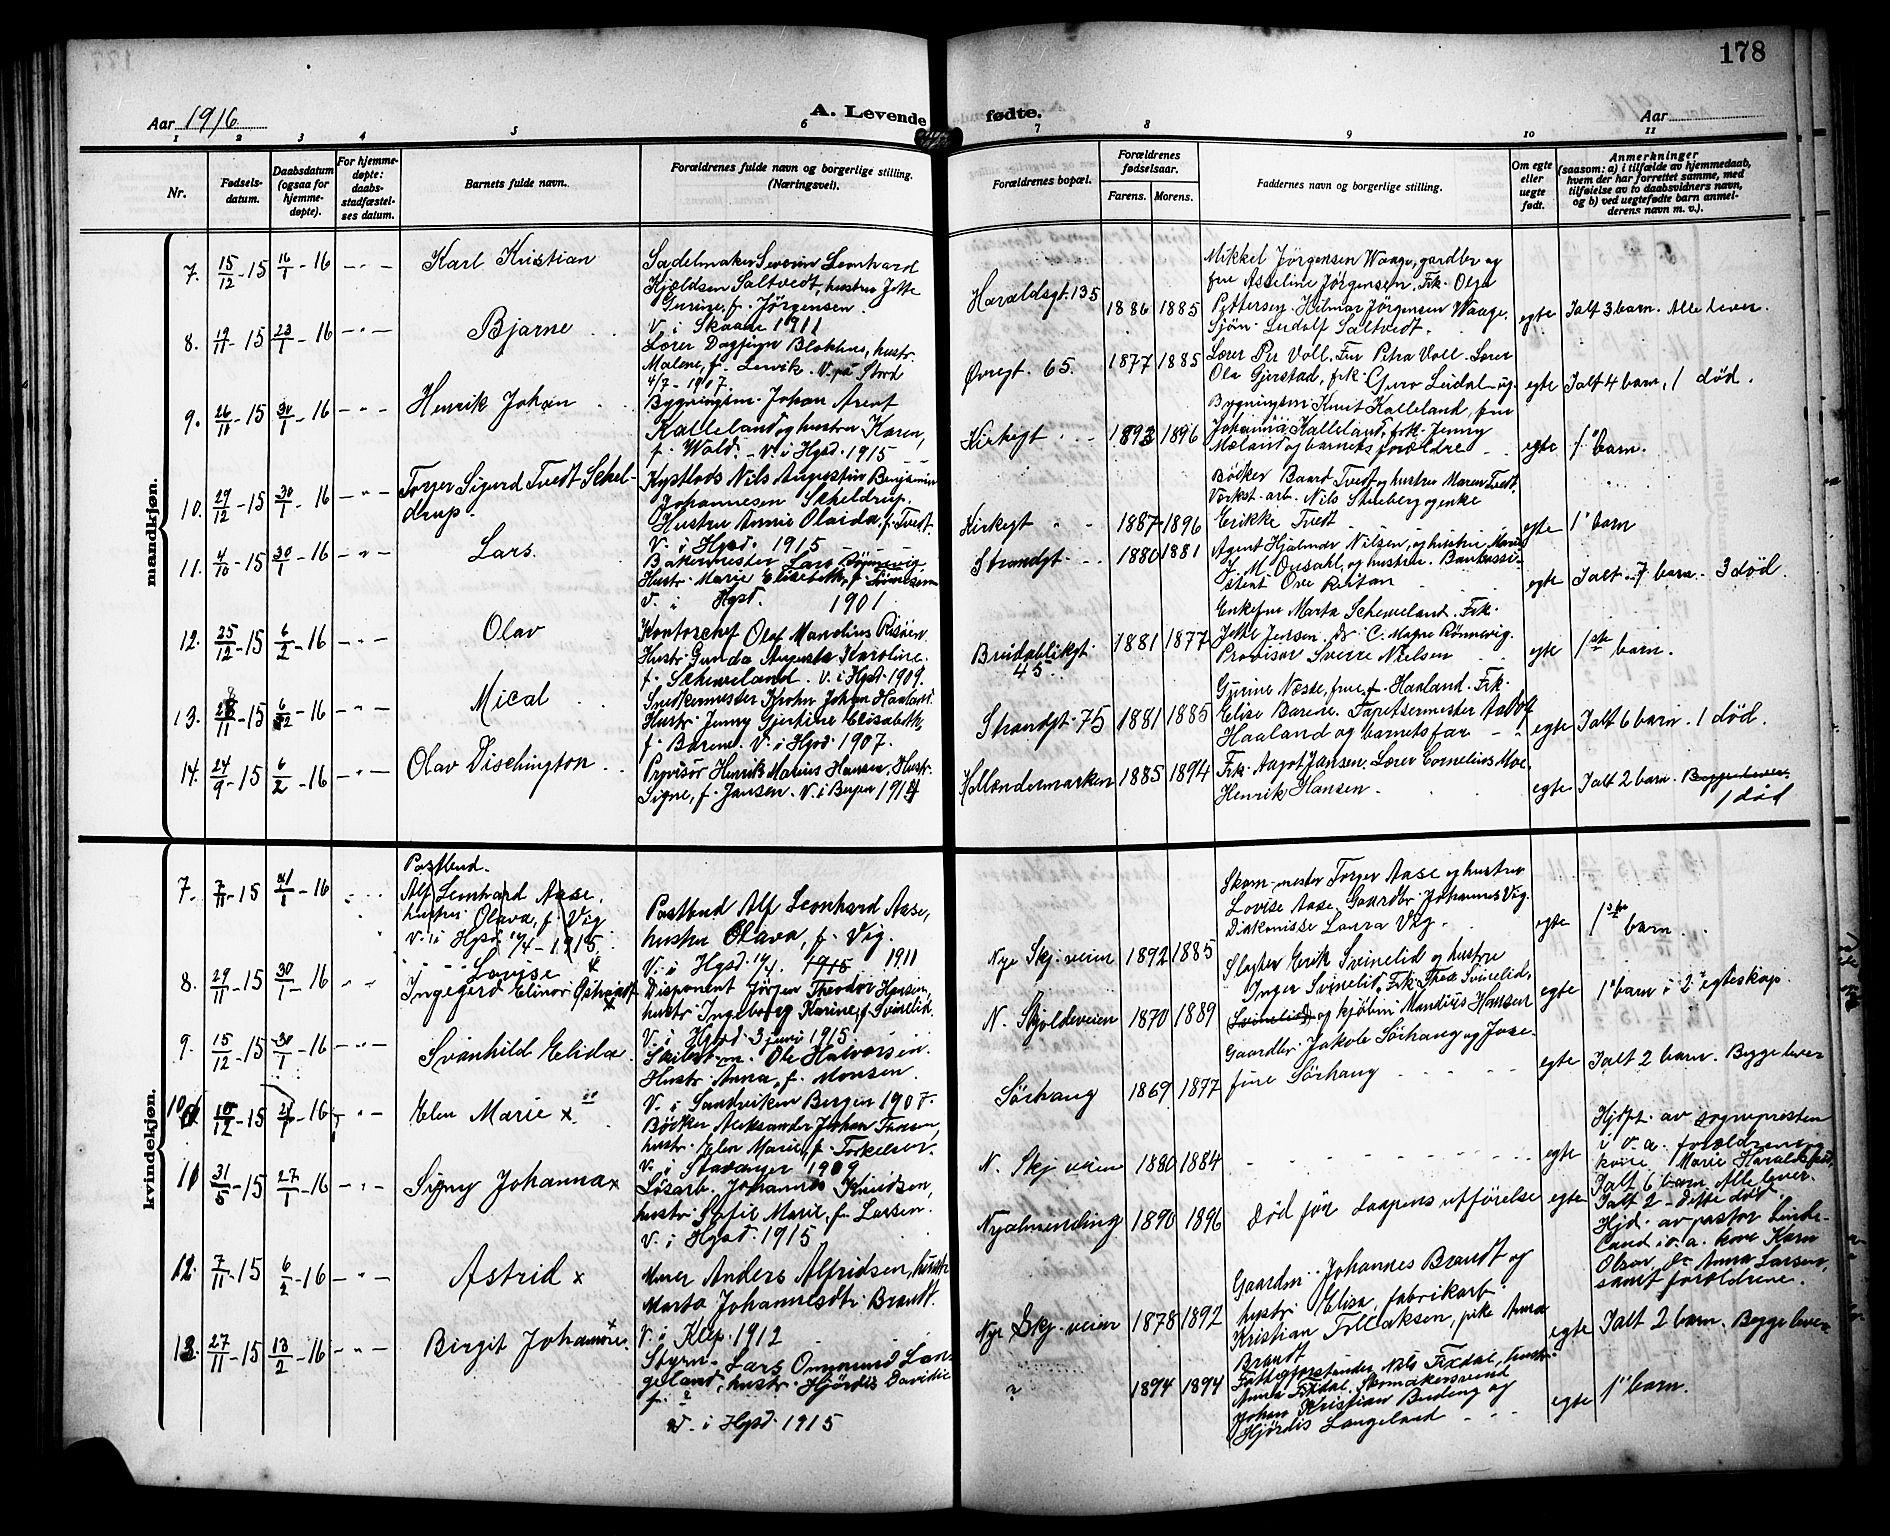 178
Aar 1916
A. Levende fødte.
Aar
1 2 3 4 5 6 7 8 9 10 11
Nr.
Fødsels-
datum.
Daabsdatum
(ogsaa for
hjemme-
døpte).
For hjemme-
døpte:
daabs-
stadfæstel-
ses datum.
Barnets fulde navn.
Forældrenes fulde navn og borgerlige stilling.
(Næringsvei).
Forældrenes bopæl.
Forældrenes
fødselsaar.
Farens. Morens.
Faddernes navn og borgerlige stilling.
Om egte
eller
uegte
født.
Anmerkninger
(saasom: a) i tilfælde av hjemmedaab,
hvem der har forrettet samme, med
tilføielse av to daabsvidners navn,
og b) ved uegtefødte barn anmel-
derens navn m. v.).
mandkjøn.
7. 15/12-15 16/1-16 Karl Kristian
Sadelmaker Severin Leonhard
Kjeldsen Saltvedt, hustru Jette
Gurine, f. Jørgensen.
V. i Skaare 1911
Haraldsgt. 135 1886 1885
Mikkel Jørgensen Waage, gardbr og
frue Asseline Jørgensen, Frk. Olga
Pettersen. Hilmar Jørgensen Waage.
Sjøm. Ludolf Saltvedt.
egte Ialt 3 barn. Alle lever.
8. 19/11-15 23/1-16 Bjarne
Lærer Dagfinn Blokhus, hustr.
Malene, f. Lervik. V. på Stord
4/7-1907.
Øvregt. 65. 1877 1885
Lærer Per Voll. Fru Petra Voll. Lærer
Ola Gjerstad, frk. Guro Leidal
egte Ialt 4 barn, 1 død.
9. 26/11-15 30/1-16 Henrik Johan
Bygningsm. Johan Arent
Kalleland og hustru Karen,
f. Wold. V. i Hgsd. 1915
Kirkegt 1893 1896
Bygningsm. Knut Kalleland, fru
Johanna Kalleland, frk. Jenny
Moland og barnets forældre
egte 1ste barn.
10. 29/12-15 30/1-16 Torger Sigurd Tvedt Schel-
drup.
Kystlods Nils Augustin Benjamin
Johannesen Scheldrup.
Hustru Annie Olaida, f. Tvedt.
V. i Hgsd. 1915
Kirkegt 1887 1896
Bødker Baard Tvedt og hustru Maren Tvedt,
Verkst. arb. Nils Steeberg og enke
Erikke Tvedt
egte 1ste barn
11. 4/10-15 30/1-16 Lars.
Bakermester Lars
Hustr. Marie Elisabeth, f. Simonsen
V. i Hgsd. 1901
Strandgt. 1880 1881
Agent Hjalmar Nilsen, og hustru Marie
J. M. Onsdahl, og hustru. Bankassi-
stent Ove Rutan
egte Ialt 7 barn. 3 død.
12. 25/12-15 6/2-16 Olav
Kontorchef Olaf Manelius Risøen
Hustr. Gunda Augusta Karoline.
f. Scheveland. V. i Hgsd. 1909.
Breidablikgt. 45. 1881 1877
Enkefru Marta Scheveland. Frk.
Jette Jensen. do C. Magne Rønnevig.
Provisor Sverre Nielsen
egte 1ste barn.
13. 28/11-15 6/2-16 Mical
Snedkermester Johan Haaland.
Hustr. Jenny Gjertine Elisabeth,
f. Barene. V. i Hgsd. 1907.
Strandgt. 75 1881 1885
Gurine Næsse, frue f. Haaland. Frk.
Elise Barene. Tapetsermester Adolf
Haaland og barnets far
egte Ialt 6 barn. 1 død.
14. 24/9-15 6/2-16 Olav Dischington
Provisor Henrik Marius Hansen. Hustr.
Signe, f. Jansen. V. i Bergen 1914
Hollendermarken 1885 1894
Frk. Aagot Jansen, Lærer Cornelius Moe.
Henrik Hansen.
egte Ialt 2 barn. Begge lever.
1 død
kvindekjøn.
7. 7/11-15 21/1-16
Postbud.
Alf Leonhard Aase,
hustru Olava, f. Vig
V. i Hgsd. 14/4-1915.
Lovise
Postbud Alf Leonhard Aase,
hustru Olava, f. Vig.
V. i Hgsd. 14/4. 1915 1911
Nye Skj. veien 1892 1885
Skom. mester Torger Aase og hustru
Lovise Aase. Gaardbr. Johannes Vig.
Diakonisse Laura Vig.
egte 1ste barn.
8. 29/11-15 30/1-16 Ingegerd Elinor Østrandt
Disponent Jørgen Theodor Hansen,
hustr. Ingeborg Karine, f. Svinelid.
V. i Hgsd. 3 juni 1915.
N. Skjoldeveien 1870 1889
Slagter Erik Svinelid og hustru
Inger Svinelid, Frk. Thea Svinelid,
Svinelid og kjøbm. Mandius Hansen
egte 1ste barn i 2det egteskap.
9. 15/12-15 30/1-16 Svanhild Elida
Skibst.m. Ole Halvorsen.
Hustr. Anna, f. Monsen.
V. i Sandviken Bergen 1907.
Sørhaug 1869 1877
Gaardbr. Jakob Sørhaug og Jose-
fine Sørhaug
egte Ialt 2 barn. Begge lever
10. 10/12-15 21/1-16 Elen Marie x
Bødker Aleksander Johan Thoresen,
hustr. Elen Marie, f. Torkelsen.
V. i Stavanger 1909
N. Skj. veien 1880 1884
egte
Hjdpt. av sognepresten
i o. a. forældrene og
kone Marie Haraldseid.
Ialt 6 barn. Alle lever.
11 31/5-15 27/1-16 Signy Johanna x
Løsarb. Johannes Knudsen,
hustr. Sofie Marie, f. Larsen.
V. i Hgsd. 1915
Nyalmending 1890 1896
Død før daapens utførelse
egte
Ialt 2 - dette død.
Hjd. av pastor Linde-
land i o. a. kone Karn
Olsen, do Anna Larsen,
samt forældrene.
12. 7/11-15 6/2-16 Astrid x
Murer Anders Alfridsen, hustr.
Marta Johannesdtr. Brandt.
V. i Klep. 1912
Nye Skj. veien 1878 1892
Gaardm. Johannes Brandt og
hustr. Elisa, fabrikarb.
Kristian Tollaksen, pike Anna
Brandt
egte Ialt 2 barn. Begge lever
13. 27/11-15 13/2-16 Birgit Johanne.
Styrm. Lars Ommund Lan-
geland, hustr. Hjørdis Davidie
f. ?
V. i Hgsd. 1915
? 1894 1894
Fattigforstander Nils Fixdal, hustr.
Anna Fixdal. Skomakersvend
Johan Kristian Buding og
Hjørdis Langeland
egte 1ste barn.